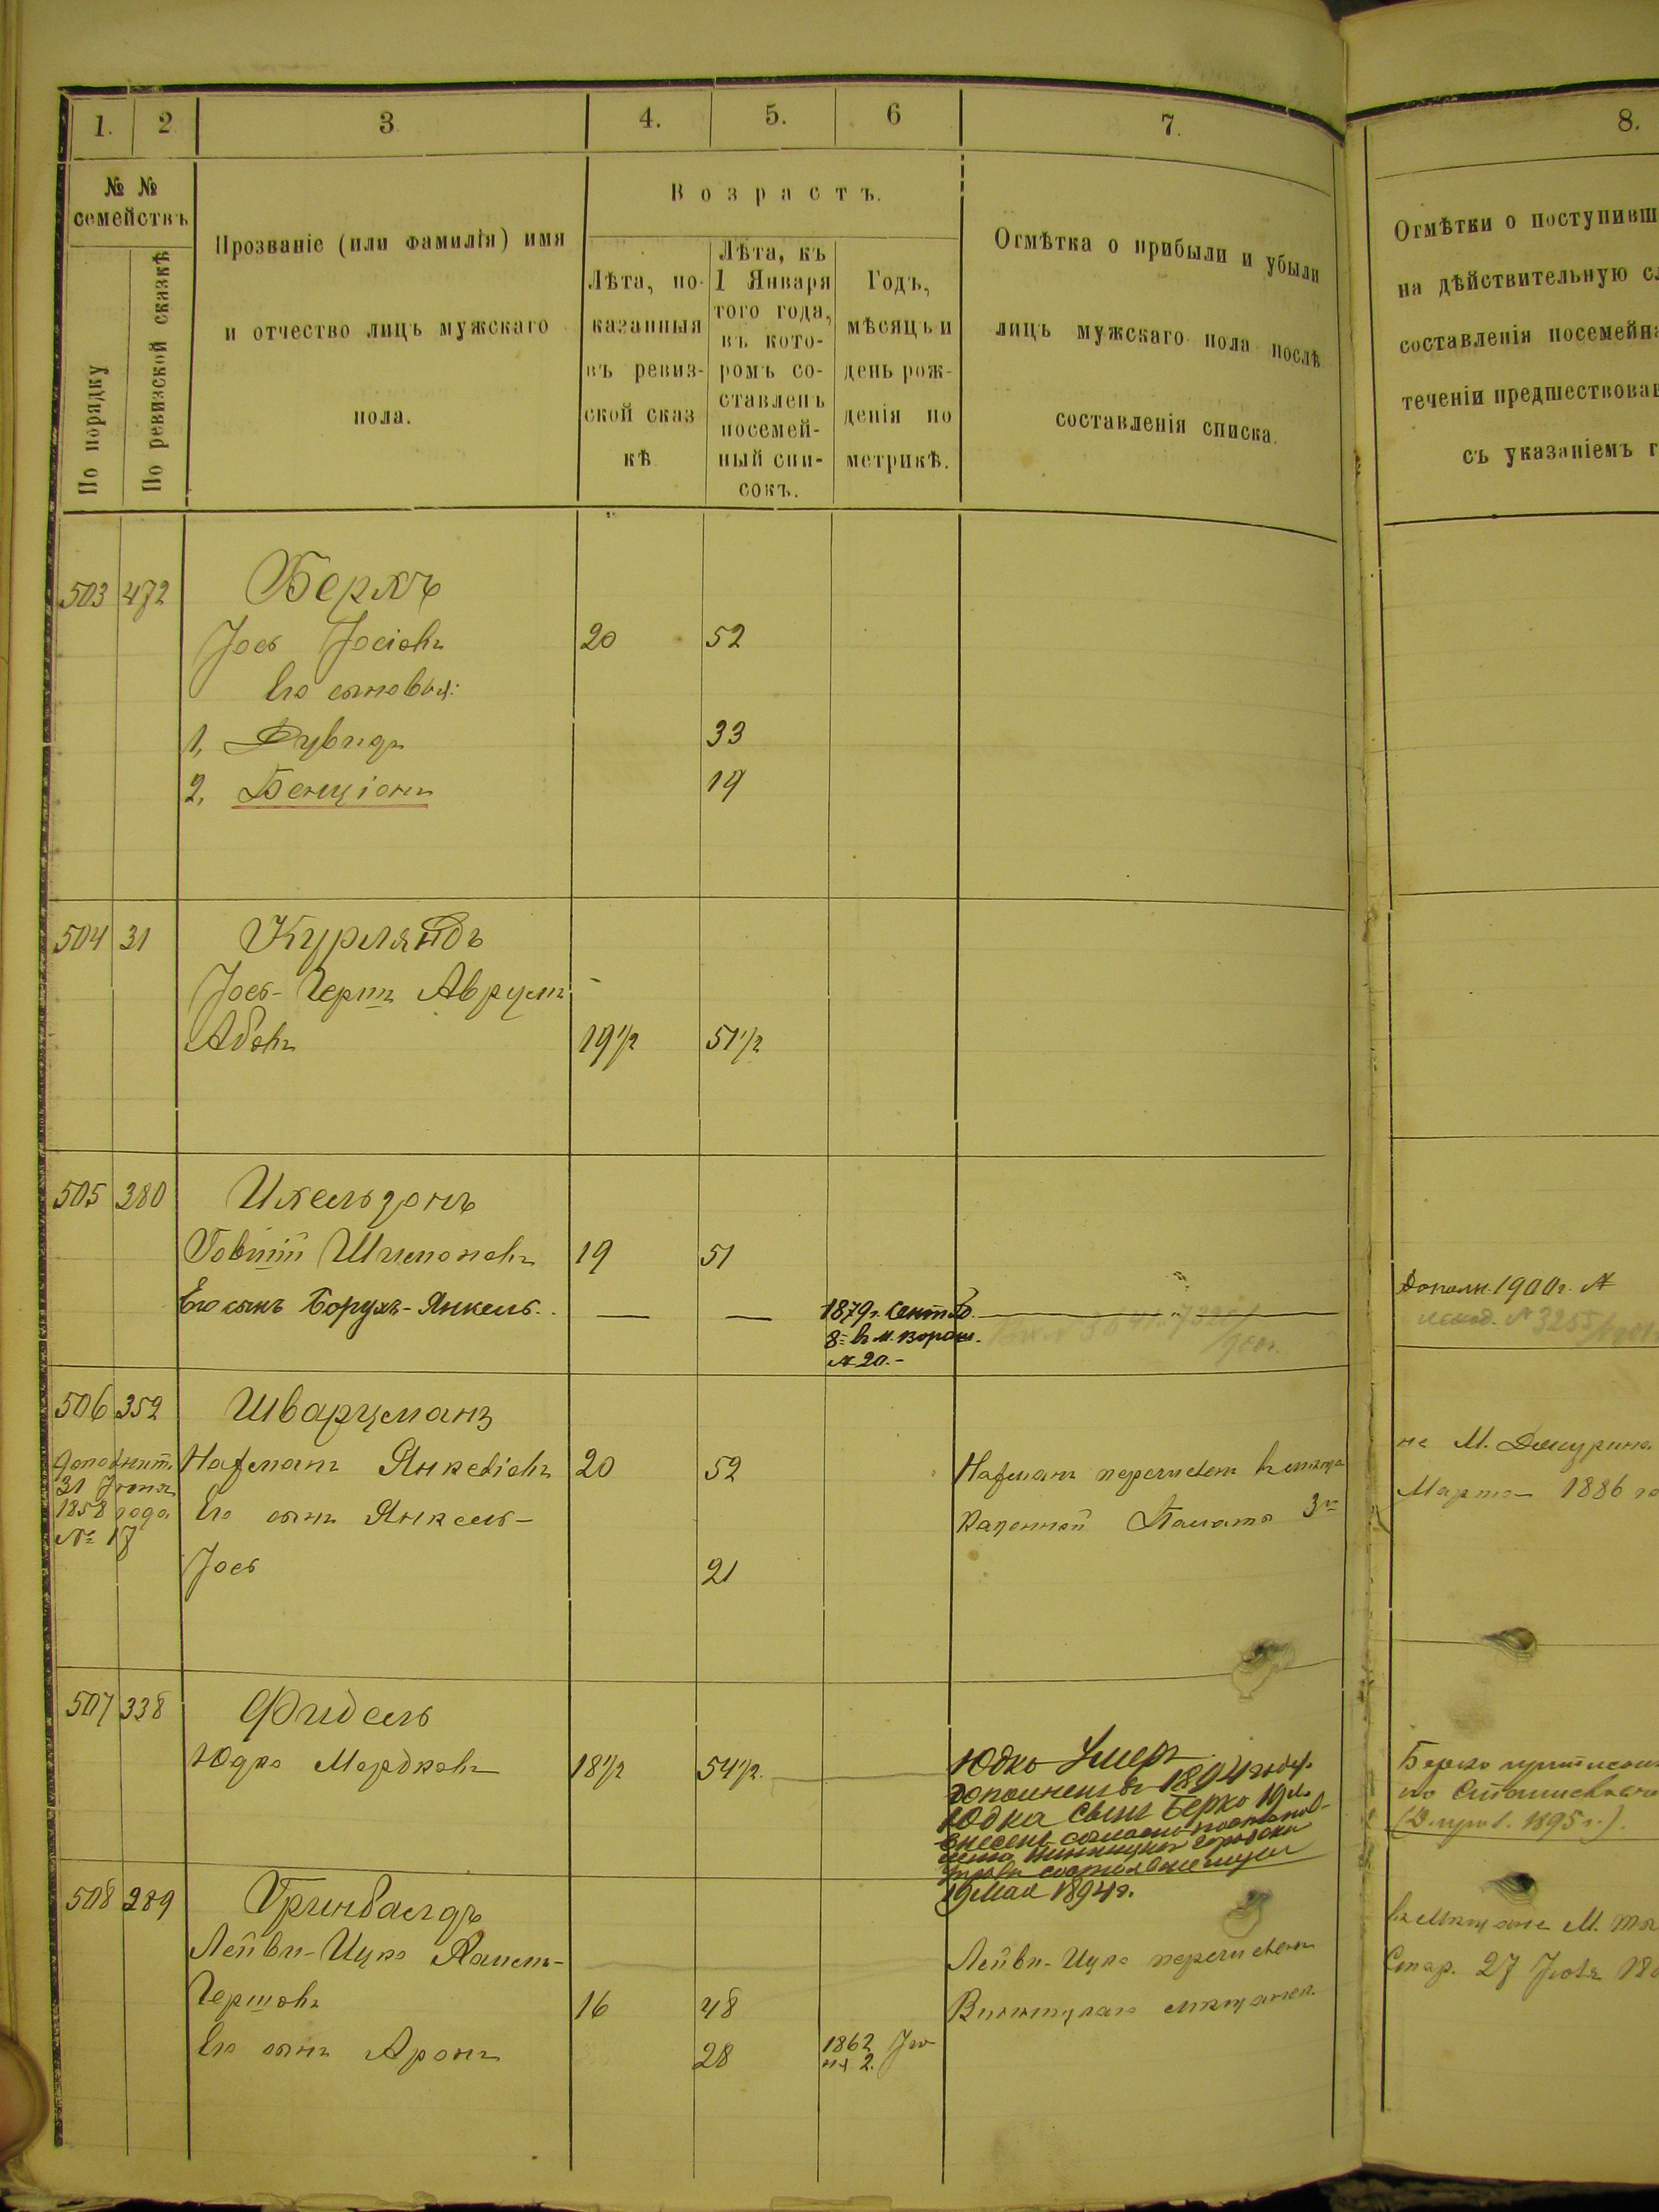 1. 2 3 4. 5. 6 7. 8.
№ №
семействъ
По порядку
По ревизской сказкѣ
Прозваніе (или фамилія) имя
и отчество лицъ мужскаго
пола.
Возрастъ.
Лѣта, по-
казанныя
въ ревиз-
ской сказ
кѣ
Лѣта, къ
1 Января
того года,
въ кото-
ромъ со-
ставленъ
посемей-
ный спи-
сокъ.
Годъ,
мѣсяцъ и
день рож-
денія по
метрикѣ.
Отмѣтка о прибыли и убыли
лицъ мужскаго пола послѣ
составленія списка.
Отмѣтки о поступивш
на дѣйствительную сл
составленія посемейна
теченіи предшествовав
съ указаніемъ г
503 472 Беркъ
Іось Іосіовъ 20 52
Его сыновья:
1, Дувидъ 33
2, Бенціонъ 19
504 31 Курляндъ
Іось-Гершъ Аврум
Абовъ 19 1/2 51 1/2
505 280 Ихельзонъ
Товшій Шимоновъ 19 51
Его сынъ Борухъ-Янкель. — — 1879 г. Сентяб.
8 в м. Ворон.
№ 20.-
Дополн. 1900 г. №
№ 3255
506 352 Шварцманъ
Дополнит.
31 Іюня
1858 года
№ 17
Нафманъ Янкевіовъ 20 52
Его сынъ Янкель-
Іось 21
Нафманъ перечисленъ
Казенной Палаты 3го
не М.
Марта 1886 го
507 338 Фидель
Юдко Мордковъ 18 1/2 54 1/2
Юдко Умеръ
1894 году.
Юдка сынъ Берко 19 л.
внесенъ согласно постанов-
19 Мая 1894 г.
Берко
по
1895 г.).
508 289 Гринбалдъ
Лейви-Ицко
Гершовъ 16 48
Его сынъ Аронъ 28 1862 Ію
ня 2.
Лейви-Ицко перечисленъ
Винницкаго мѣщанск.
въ мѣщане М.
Стар. 27 Іюля 18